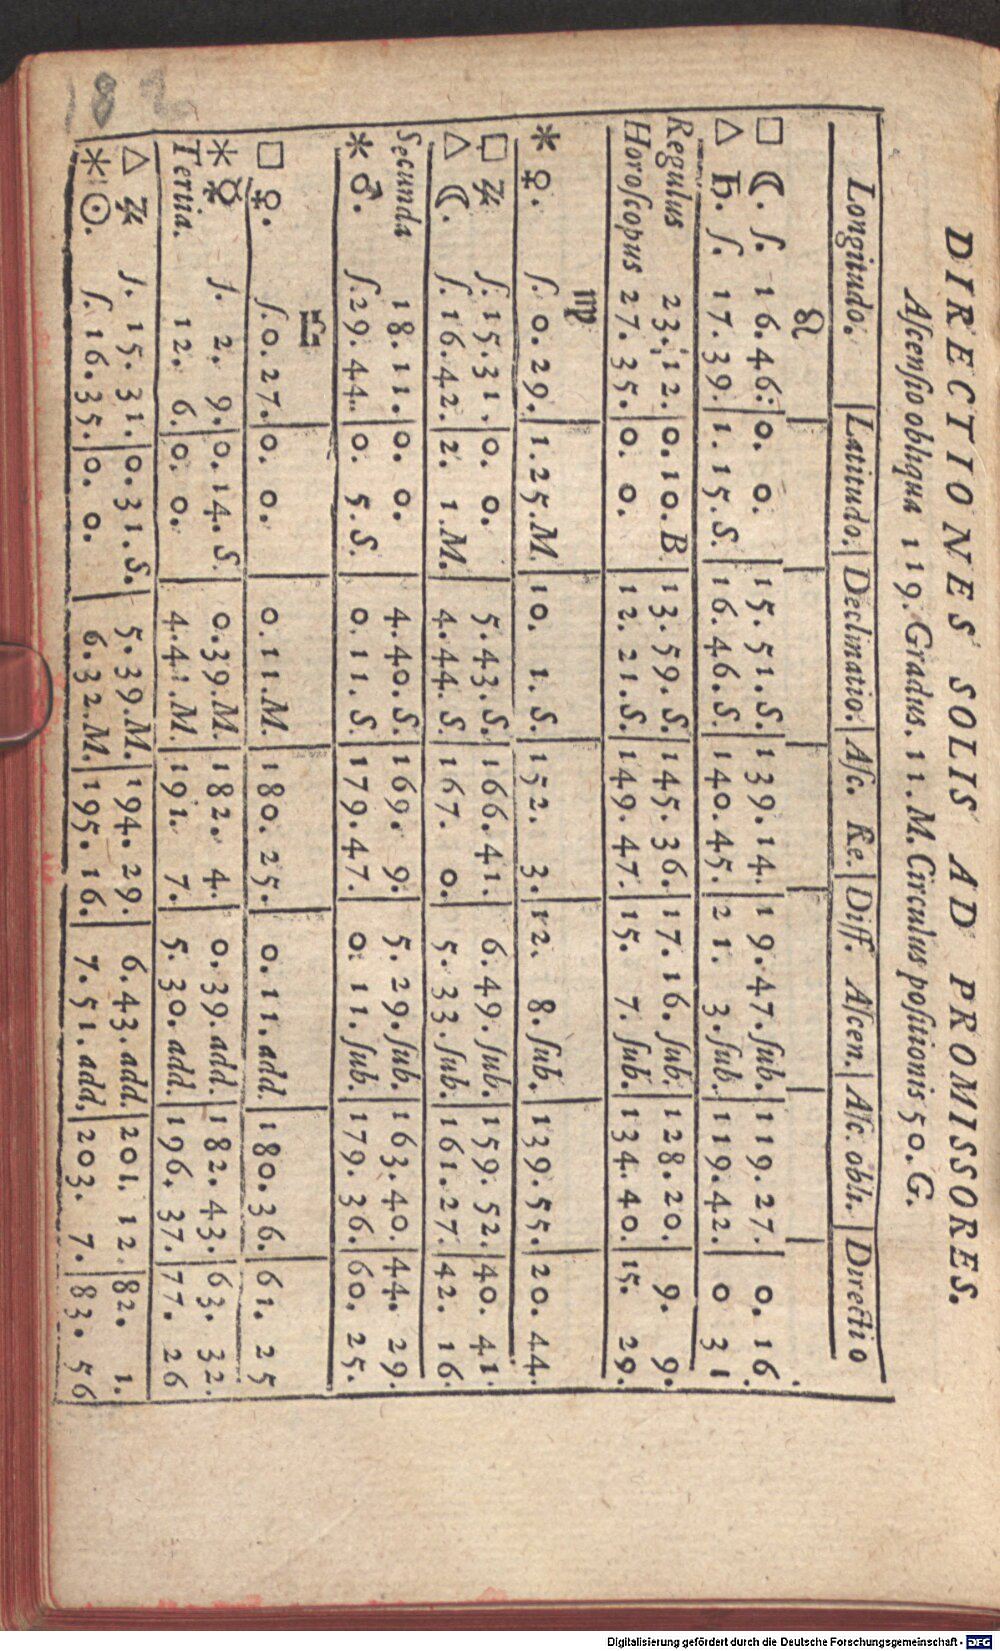 182
DIRECTIONES SOLIS AD PROMISSORES.
Aſcenſio obliqua 119. Gradus. 11. M. Circulus poſitionis 50. G.
Longitudo. Latitudo. Declinatio. Aſc. Re. Diff. Aſcen. Aſc. obli. Directio
♌
□ ☾. ſ. 16.46: 0. 0. 15.51.S. 139.14. 19.47.ſub. 119.27. 0.16.
△ ♄. ſ. 17.39. 1.15.S. 16.46.S. 140.45. 21. 3.ſub. 119.42. 0 31
Regulus 23.12. 0.10.B 13.59.S. 145.36. 17.16.ſub. 128.20. 9. 9.
Horoſcopus 27.35. 0. 0. 12.21.S. 149.47. 15. 7.ſub. 134.40. 15. 29.
♍
⚹ ♀. ſ. 0.29. 1.25.M. 10. 1.S. 152. 3. 12. 8.ſub. 139.55. 20.44.
□ ♃ ſ. 15.31. 0. 0. 5.43.S. 166.41. 6.49.ſub. 159.52. 40. 41.
△ ☾. ſ. 16.42. 2. 1.M. 4.44.S. 167. 0. 5.33.ſub. 161.27. 42. 16.
Secunda 18.11. 0. 0. 4.40.S. 169. 9. 5.29.ſub. 163.40. 44. 29.
⚹ ♂. ſ.29.44. 0. 5.S. 0.11.S. 179.47. 0.11.ſub. 179.36. 60. 25.
♎
□ ♀. ſ.0.27. 0. 0. 0.11.M. 180.25. 0.11.add. 180.36. 61. 25
⚹ ☿ ſ. 2. 9. 0.14.S. 0.39.M. 182. 4. 0.39.add. 182.43. 63. 32.
Tertia. 12. 6. 0. 0. 4.4 .M. 191. 7. 5.30.add. 196.37. 77. 26
△ ♃ ſ. 15.31. 0.31.S. 5.39.M. 194.29. 6.43.add. 201.12. 82. 1.
⚹ ☉. ſ. 16.35. 0. 0. 6.32.M. 195.16. 7.51.add. 203. 7. 83. 56
Digitalisierung gefördert durch die Deutsche Forschungsgemeinschaft - DFG